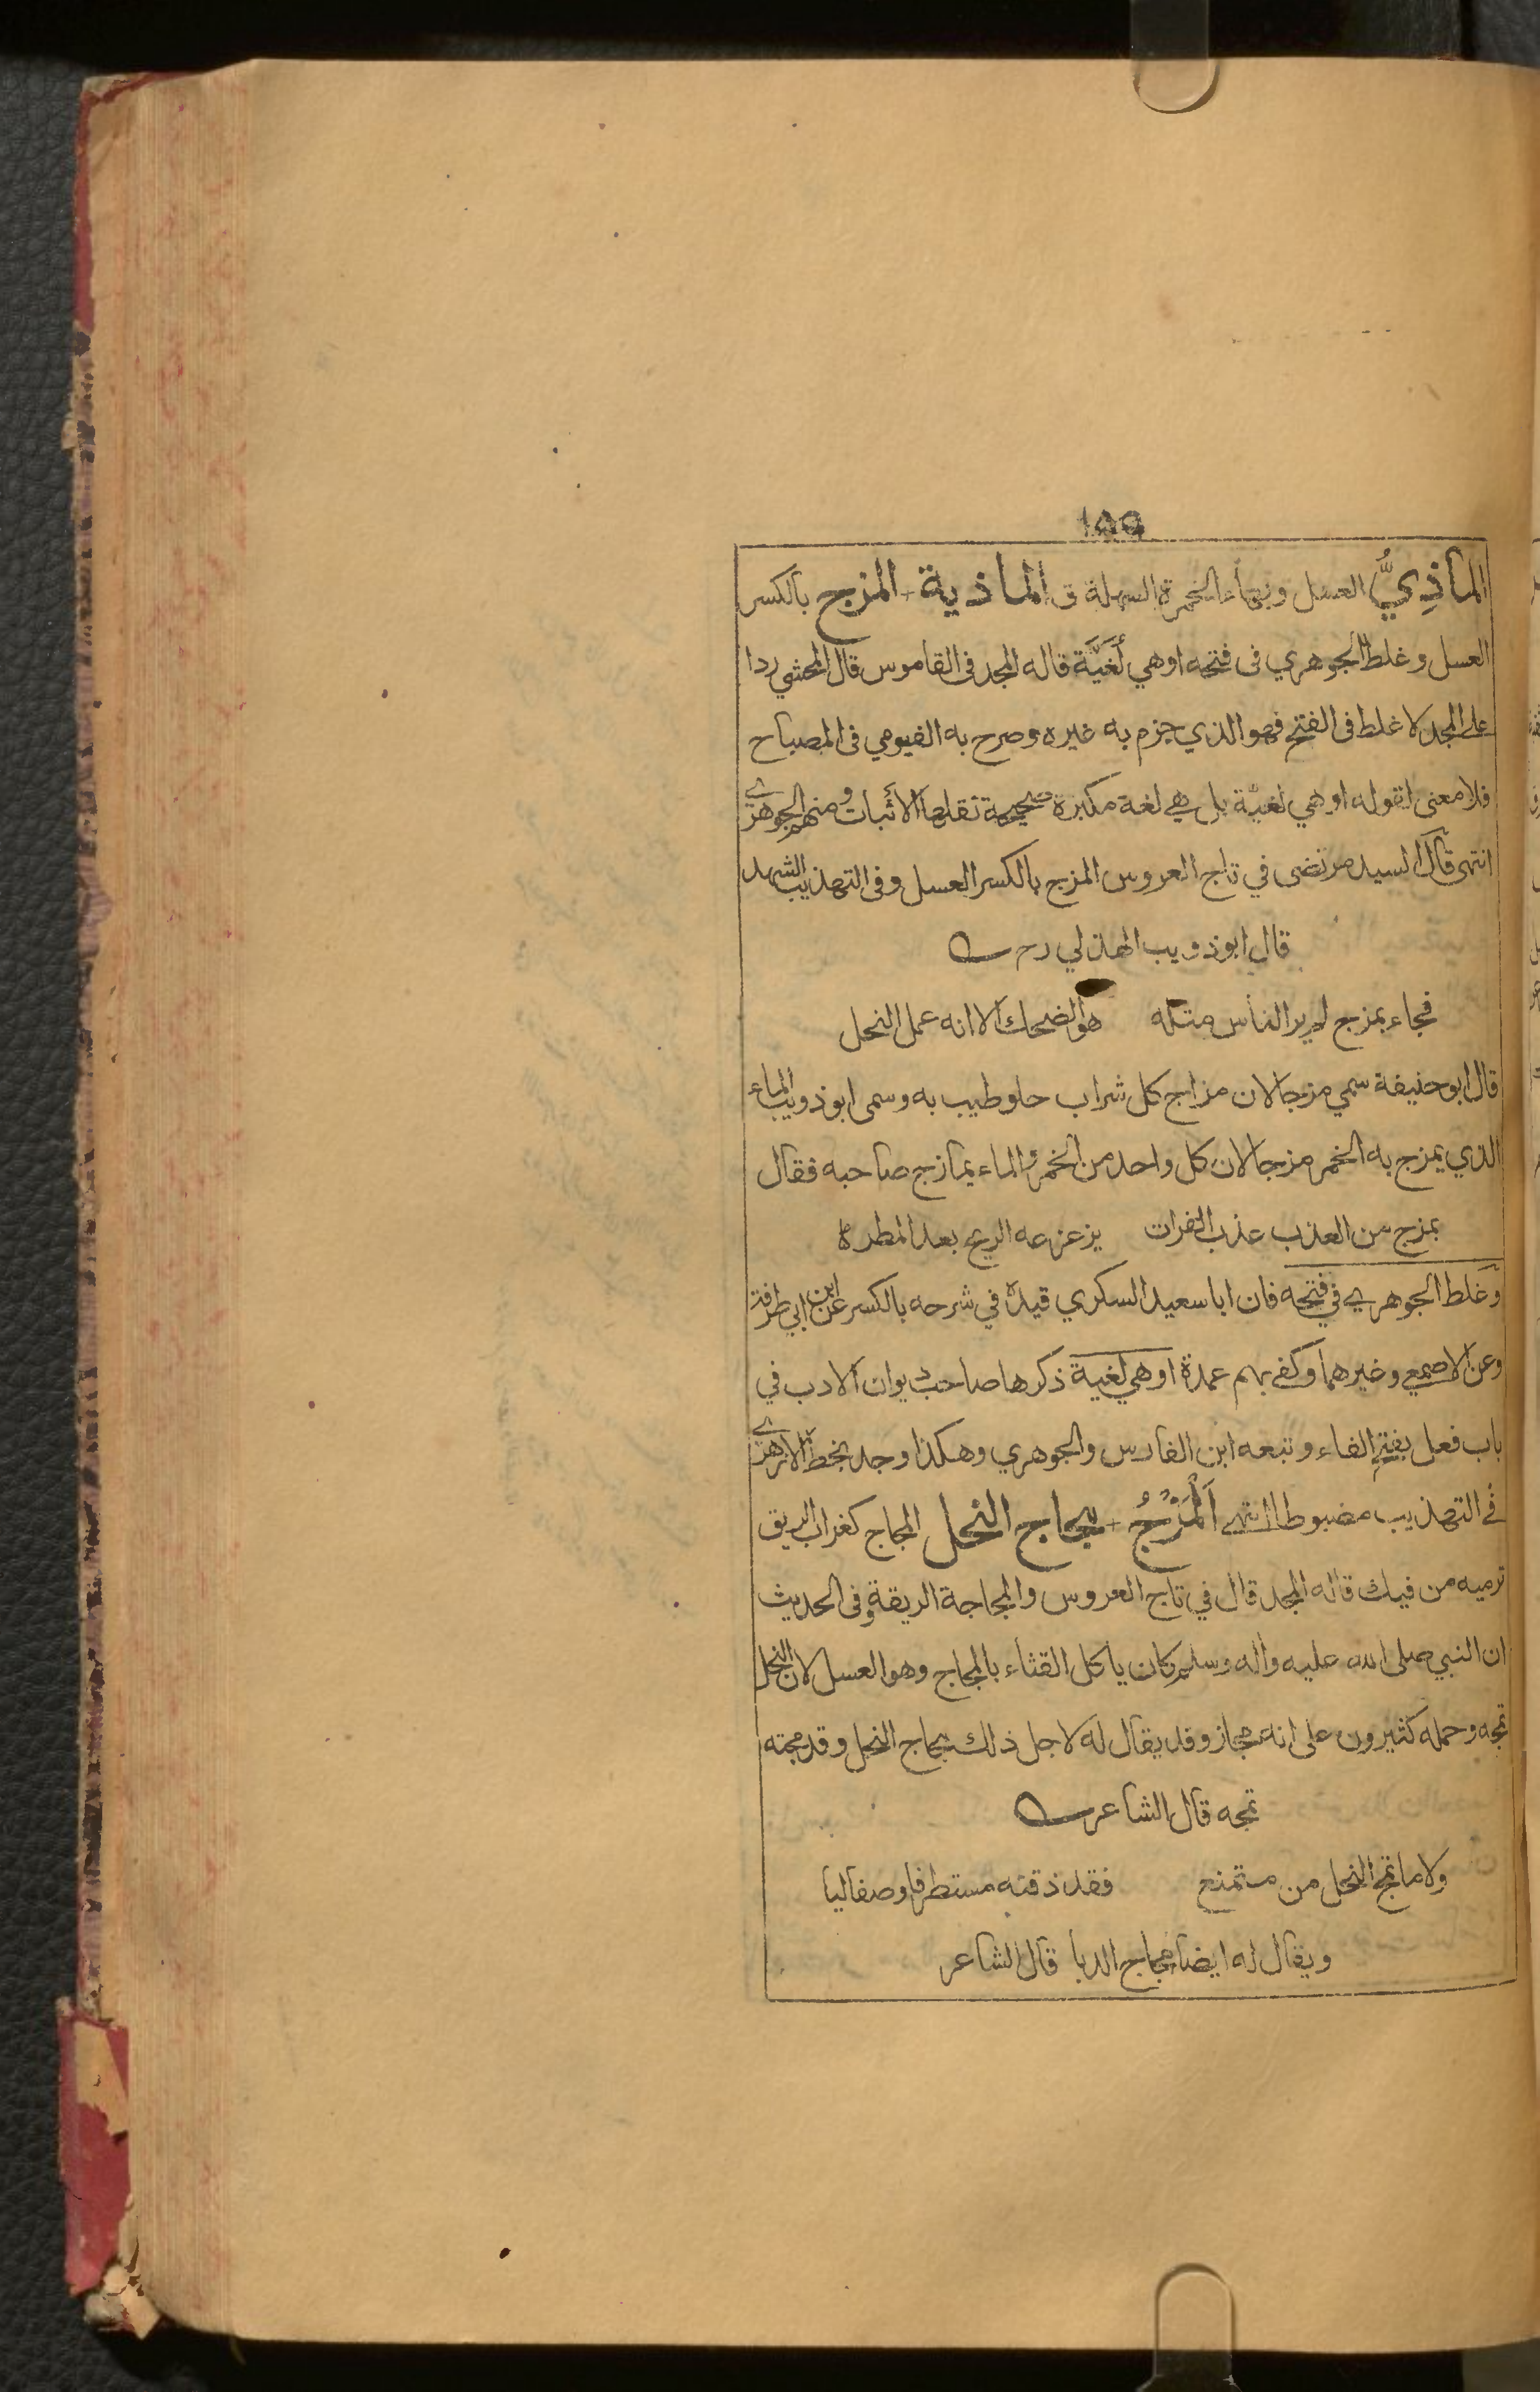 ١٥٥
الماذِيُّ العسل وبهاء الخمرة السهلة ق الماذية + المزج بالكسر
العسل وغلط الجوهري فى فتحه اوهي لُغَيَّة قاله المجد فى القاموس قال المحشي ردا
على المجد لا غلط فى الفتح فهو الذي جزم به غيره وصرح به الفيومي فى المصباح
فلا معنى لقوله اوهي لغيّة بل هي لغة مكبرة صحيحة نقلها الاثبات ومنهم الجوهري
انتهى قال السيد مرتضى في تاج العروس المزج بالكسر العسل وفى التهذيب الشهد
قال ابو ذويب الهذلي رح
فجاء بمزج لم ير الناس مثله هو الضحك الا انه عمل النحل
قال ابو حنيفة سمي مزجا لان مزاج كل شراب حلو طيب به وسمى ابو ذويب الماء
الذي يمزج به الخمر مزجا لان كل واحد من الخمر والماء يمازج صاحبه فقال
بمزج من العذب عذب الفرات يزعزعه الريح بعد المطر
وغلط الجوهري في فتحه فان ابا سعيد السكري قيده في شرحه بالكسر عن ابن ابي طرفة
وعن الاصمعي وغيرهما وكفى بهم عمدة اوهي لغية ذكرها صاحب ديوان الادب في
باب فعل بفتح الفاء وتبعه ابن الفارس والجوهري وهكذا وجد بخط الازهري
فى التهذيب مضبوطا انتهى اَلْمَزْجُ + مجاج النحل المجاج كغراب الريق
ترميه من فيك قاله المجد قال في تاج العروس والمجاجة الريقة وفى الحديث
ان النبي صلى الله عليه واله وسلم كان ياكل القثاء بالمجاج وهو العسل لان النحل
تمجه وحمله كثيرون على انه مجاز وقد يقال له لاجل ذلك مجاج النحل وقد مجته
تمجه قال الشاعر
ولا ما تمج النحل من متمنع فقد ذقته مستطرفا وصفا ليا
ويقال له ايضا مجاج الدبا قال الشاعر